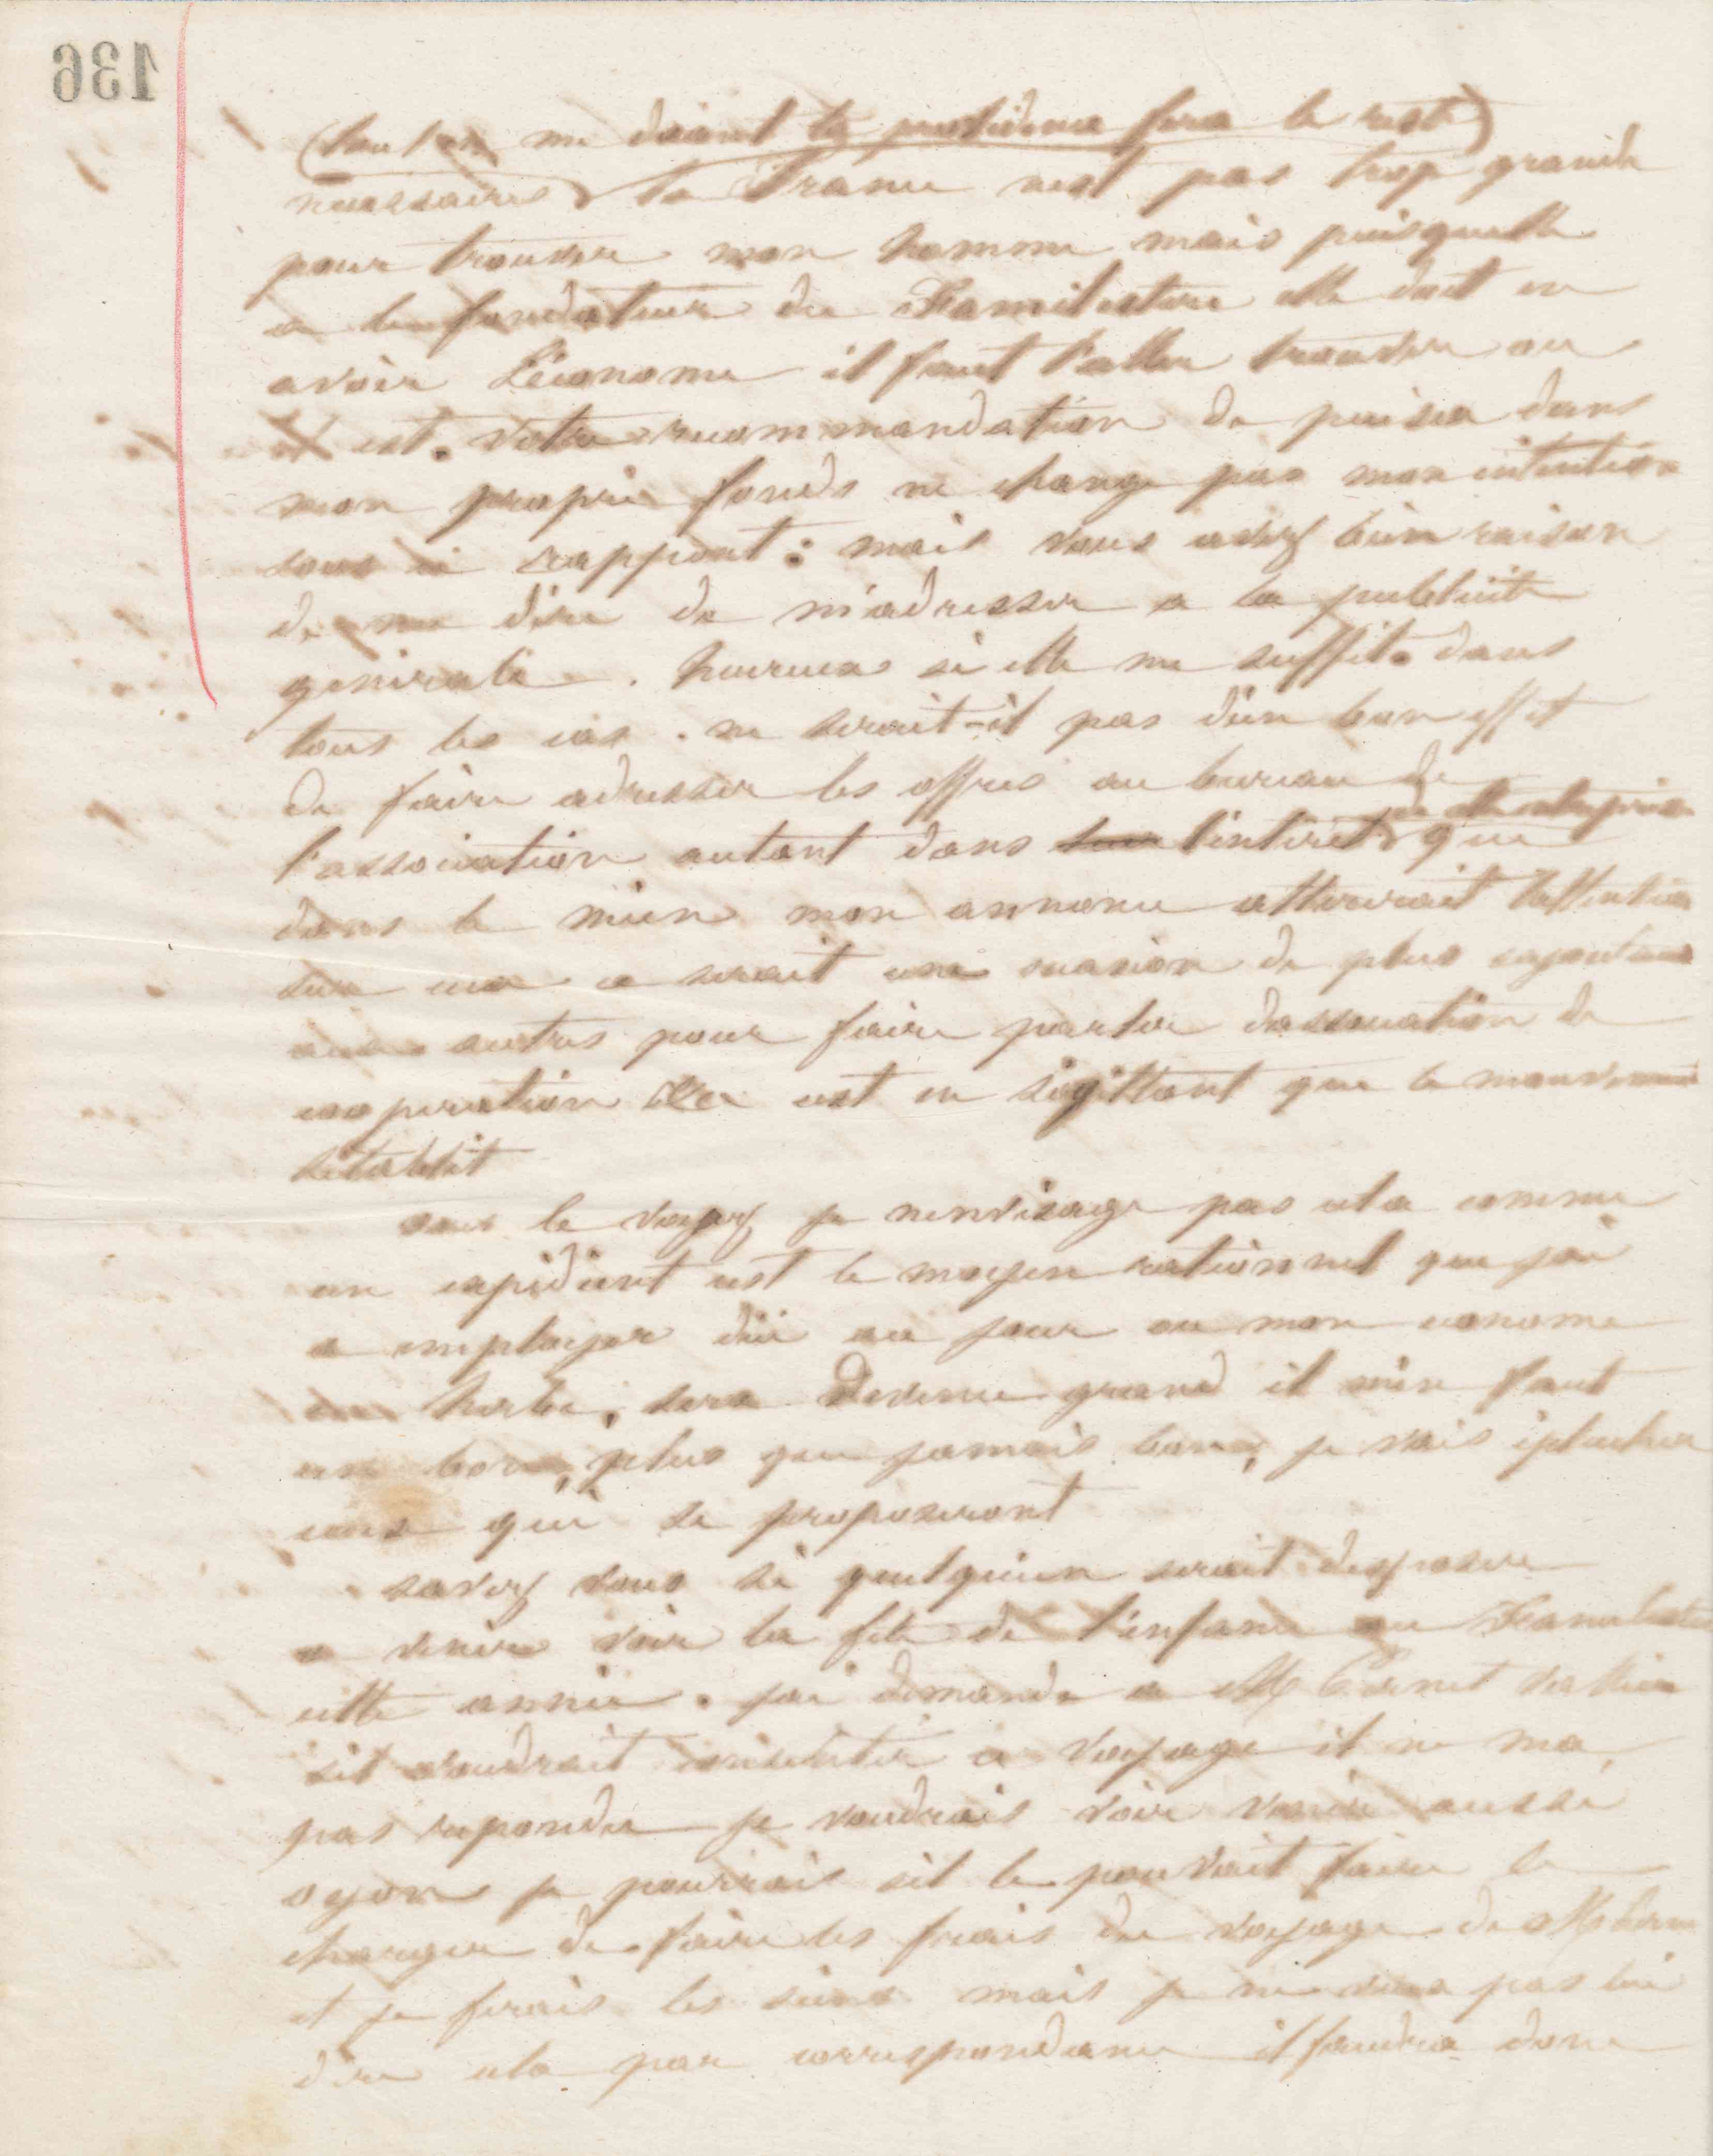 136
me disant la providence fera le reste)
necessaires la France nest pas trop grande
pour trouver mon homme mais puisquelle
a le fondateur du Familistere elle doit en
avoir l'économe il faut l'aller trouver ou
il est. votre recommandation de puiser dans
mon propre fonds ne change pas mon intention
sous ce rapport : mais vous avez bien raison
de me dire de m'adresser a la publicité
generale . heureux si elle me suffit. dans
tous les cas . ne serait-il pas d'un bon effet
de faire adresser les offres au bureau de
l'association autant dans l'interet que
dans le mien mon annonce attirerait l'attention
sur eux ce serait une raison de plus
aux autres pour faire parler dassociation de
cooperation cest en que le mouvement
setablit
vous le voyez je nenvisage pas cela comme
un expedient cest le moyen rationnel que jai
a employer dici au jour ou mon econome
en herbe, sera devenu grand il m'en faut
un bon, plus que jamais bon, je vais eplucher
ceux qui se proposeront
savez vous si quelquun serait dispose
a venir voir la fete de l'enfance au Familistere
cette annee . jai demande a M
sil voudrait ce voyage il ne ma
pas repondu je voudrais voir venir aussi
oyon je pourrais sil le pouvait faire le
charger de faire les frais du voyage de M
et je ferais les siens mais je ne veux pas lui
dire cela par correspondance il faudra donc